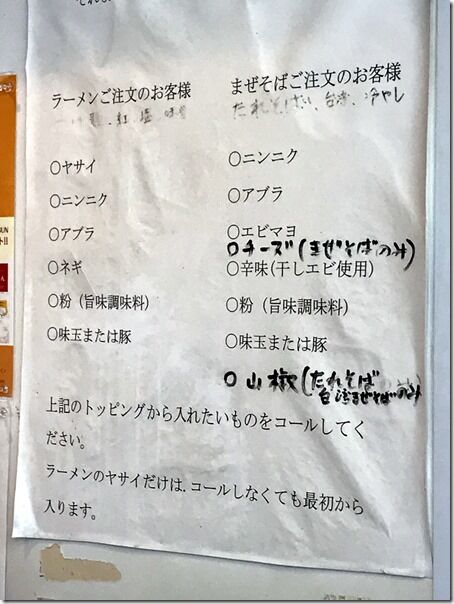 ラーメンご注文のお客様
紅、塩、味噌
○ヤサイ
○ニンニク
○アブラ
○ネギ
○粉（旨味調味料）
○味玉または豚
まぜそばご注文のお客様
たれそば、台湾、冷やし
○ニンニク
○アブラ
○エビマヨ
○チーズ(まぜそばのみ)
○辛味(干しエビ使用)
○粉（旨味調味料）
○味玉または豚
○山椒(たれそば
台湾まぜそばのみ
上記のトッピングから入れたいものをコールしてく
ださい。
ラーメンのヤサイだけは、コールしなくても最初から
入ります。